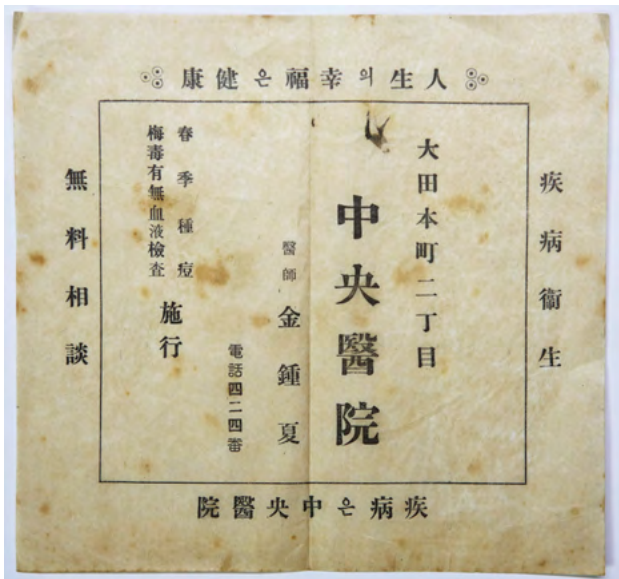 人生의幸福은健康
疾病衞生
大田本町二丁目
中央醫院
醫師 金鍾夏
電話四二四番
春季種痘
梅毒有無血液檢查
施行
無料相談
疾病은中央醫院